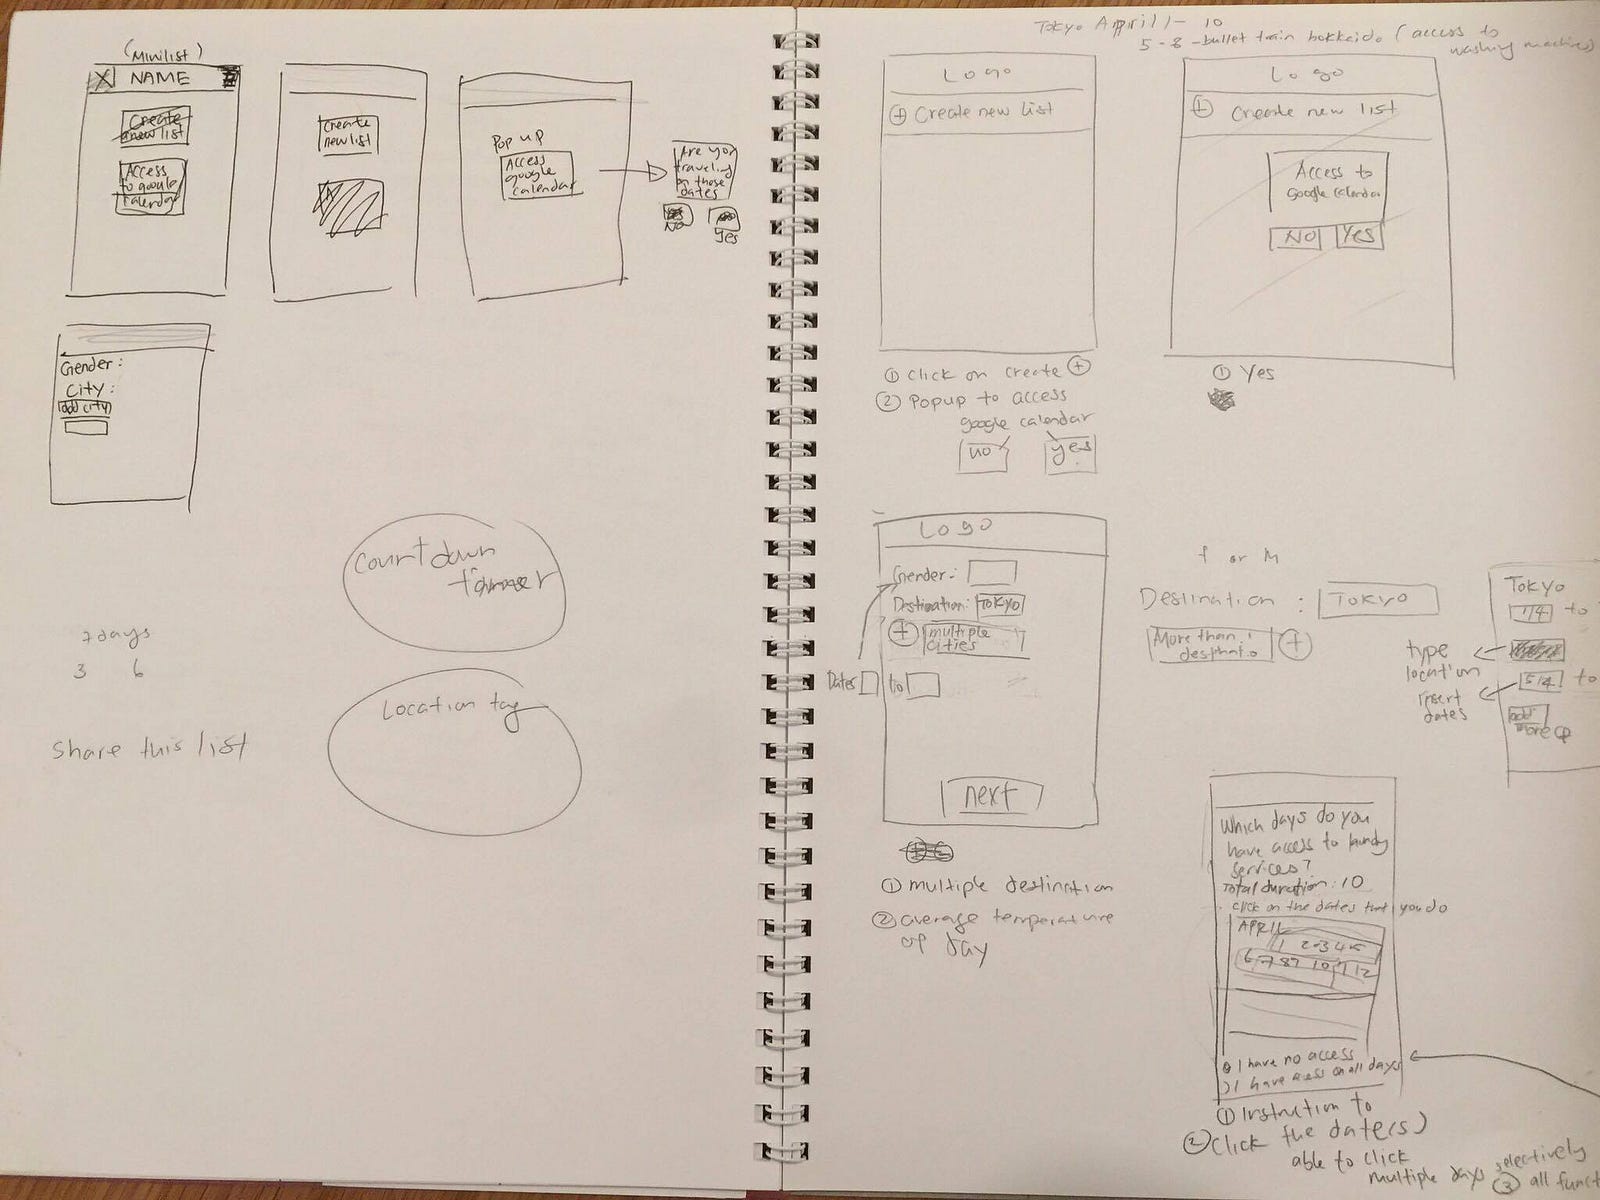 (Minilist)
X NAME
Create
new list
Access
to google
calendar
Create
new list
Pop up
Access
google
calendar
Are you
traveling
on those
dates
No
Yes
Gender :
City :
add city
Countdown
7 days
3 6
Share this list
Location tag
Tokyo Appril 1 - 10
5 - 8 - bullet train hokkaido (access to
washing machine)
Logo
+ Create new list
① Click on create +
② Popup to access
google calendar
no yes
Logo
+ Create new list
Access to
google calendar
No Yes
① Yes
Logo
Gender :
Destination: Tokyo
+ multiple
cities
Dates to
next
① multiple destination
② average temperature
of day
f or M
Destination : Tokyo
More than 1
+
Tokyo
1/4 to
type
location
insert
dates
5/4 to
add
more
Which days do you
have access to laundry
services?
Total duration : 10
click on the dates that you do
APRIL
1 2 3 4 5
6 7 8 9 10 11 12
I have no access
I have access on all days
① Instruction to
② Click the date(s)
able to click
multiple days selectively
③ all funct